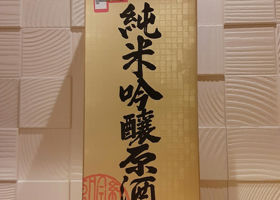 純米吟醸原酒